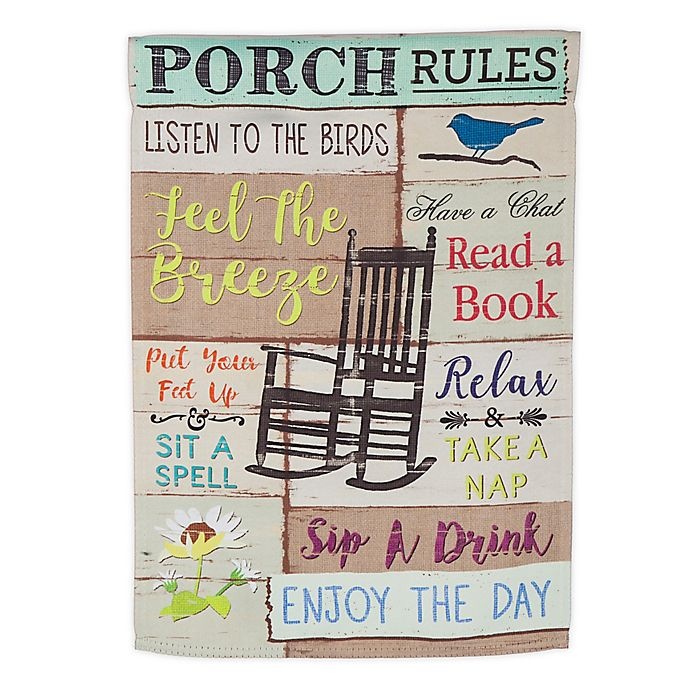 PORCH RULES
LISTEN TO THE BIRDS
Feel The
Breeze
Have a Chat
Read a
Book
Put Your
Feet Up
&
SIT A
SPELL
Relax
&
TAKE A
NAP
Sip A Drink
ENJOY THE DAY